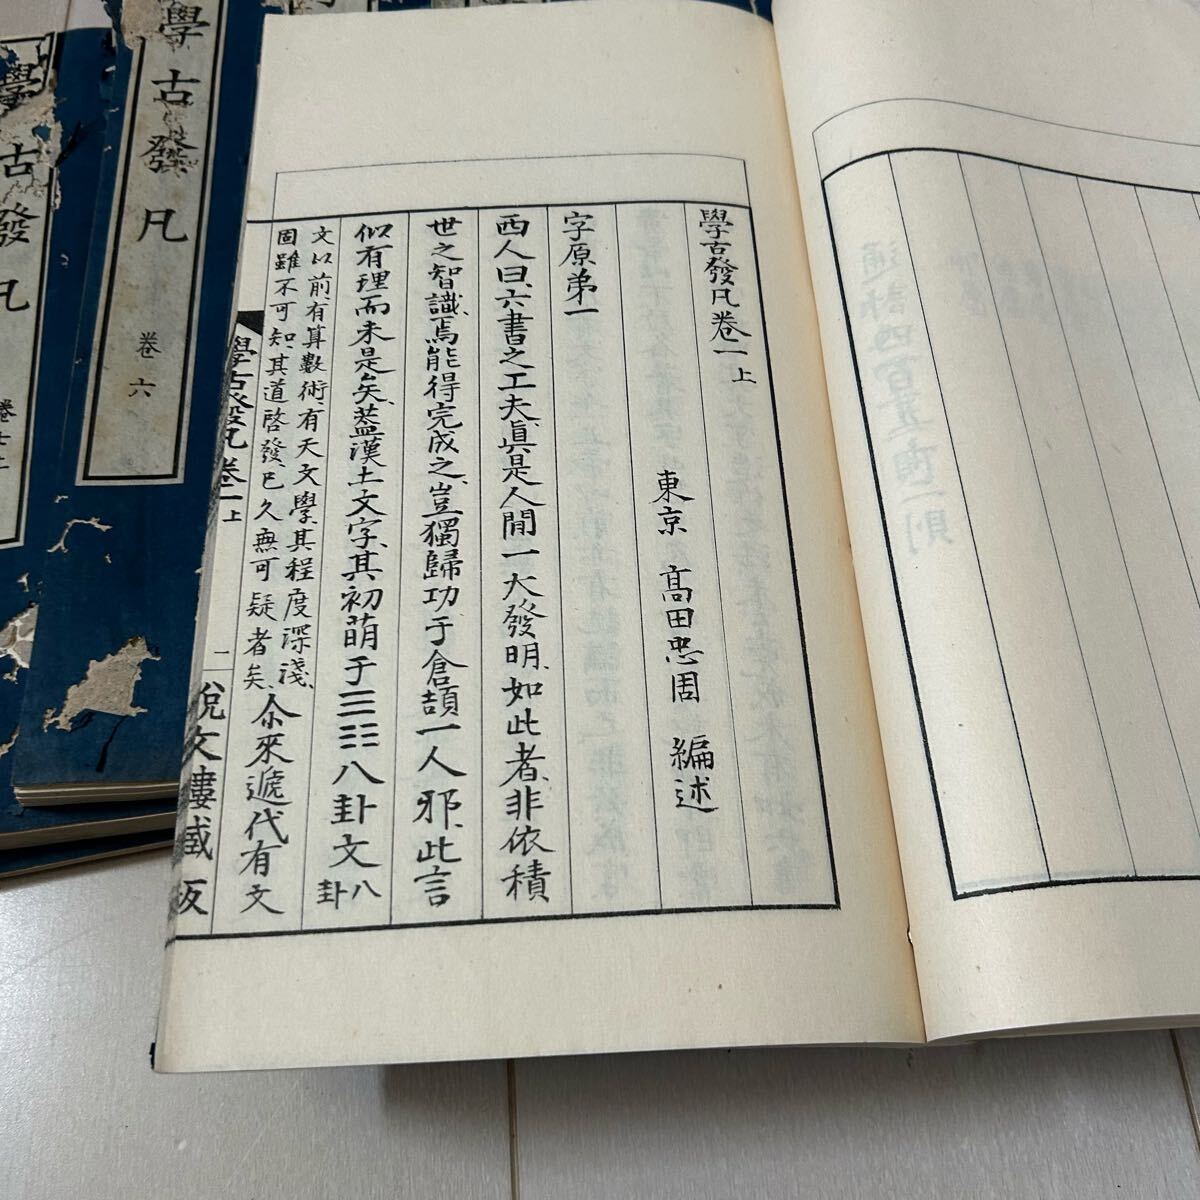 學古發凡卷一上
東京 高田忠周 編述
字原弟一
西人曰、六書之工夫、眞是人閒一大發明、如此者、非依積
世之智識、焉能得完成之、豈獨歸功于倉頡一人邪、此言
似有理而未是矣、葢漢土文字、其初萌于三三三八卦文八卦
文以前、有算數術、有天文學、其程度深淺、
固雖不可知、其道啓發、已久無可疑者矣、尒來遞代有文
學古發凡卷一上 一 說文樓藏版
學古發凡 卷六
學古發凡